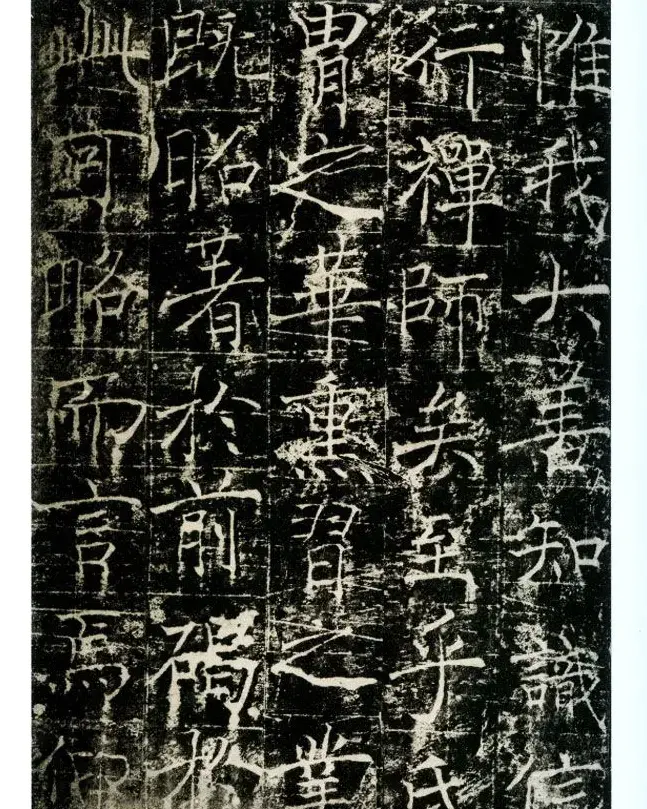 惟我大善知識信
行禪師矣至乎氏
胄之華熏習之業
既昭著於前碣於
此可略而言焉